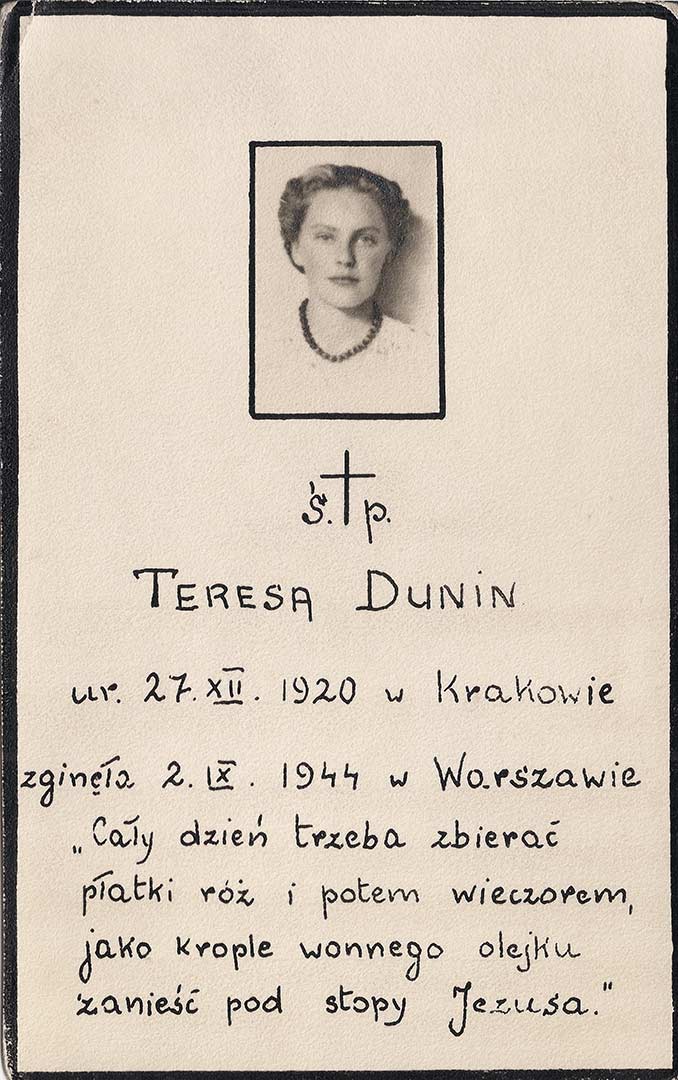 ś. p.
TERESA DUNIN
ur. 27. XII. 1920 w Krakowie
zginęła 2. IX. 1944 w Warszawie
„Cały dzień trzeba zbierać
płatki róż i potem wieczorem,
jako krople wonnego olejku
zanieść pod stopy Jezusa."